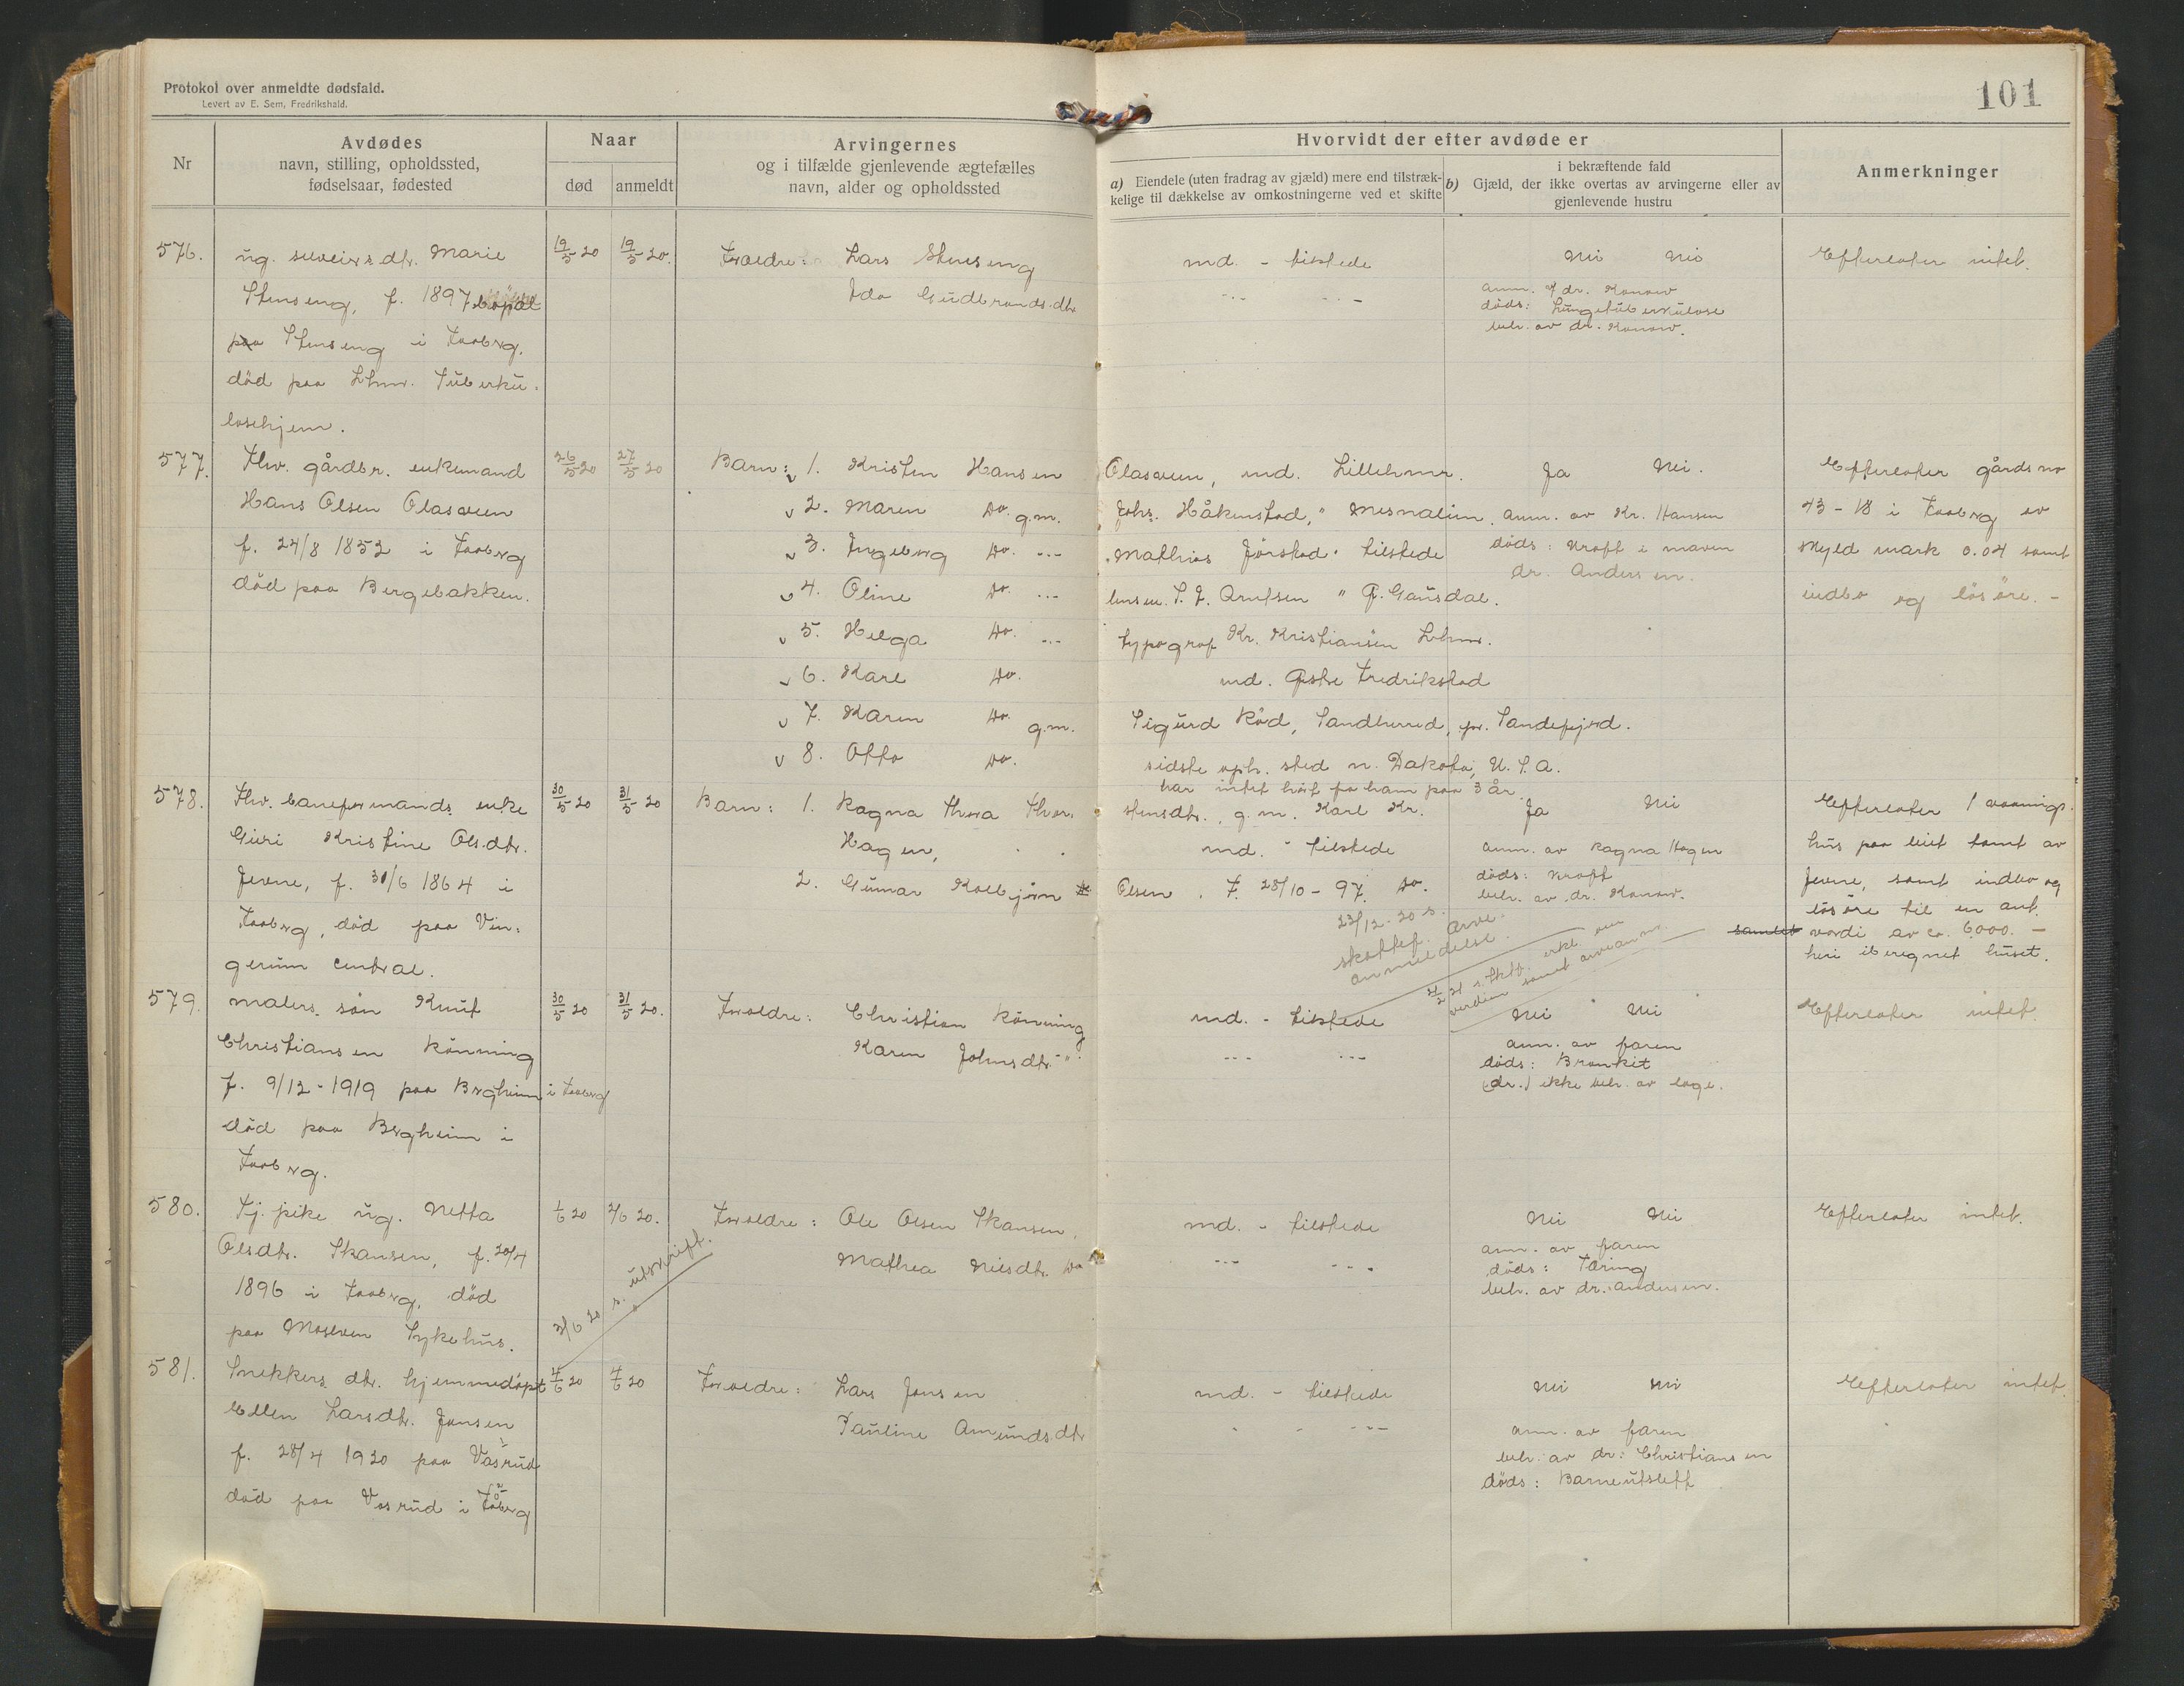 Protokol over anmeldte dødsfald.
Levert av E. Sem, Fredrikshald.
101
Nr
Avdødes
navn, stilling, opholdssted,
fødselsaar, fødested
Naar
død
anmeldt
Arvingernes
og i tilfælde gjenlevende ægtefælles
navn, alder og opholdssted
Hvorvidt der efter avdøde er
a) Eiendele (uten fradrag av gjæld) mere end tilstræk-
kelige til dækkelse av omkostningerne ved et skifte
i bekræftende fald
b) Gjæld, der ikke overtas av arvingerne eller av
gjenlevende hustru
Anmerkninger
576. ug. selveiers dtr. Marie 19/5 20 19/5 20. Forældre: Lars Stenseng md. - tilstede Nei Nei Efterlater intet.
Stenseng, f. 1897 Ida Gudbrandsdtr. --- ---
anm. dr. Konow
døds: Lungetuberkulose
beh. av dr. Konow.
paa Stenseng i Faaberg.
död paa Lhmr. Tuberku-
losehjem.
577. Fhv. gårdbr. enkemand 26/5 20 27/5 20 Barn: 1. Kristen Hansen Olasveen, md. Lillehmr. Ja Nei. Efterlater gårds no
Hans Olsen Olasveen 2. Maren do. g.m. Johs. Håkenstad, " Mesnalien anm. av Kr. Hansen 43-18 i Faaberg av
f. 24/8 1852 i Faaberg 3. Ingeborg do. --- Mathias Jörstad " tilstede döds: Kræft i maven skyld mark 0.04 samt
dr. Andersen.
död paa Bergebakken. 4. Oline do. --- T. J. Arntsen " Ö. Gausdal. indbo og lösöre. -
5. Helga do. --- typograf Kr. Kristiansen Lhmr.
6. Karl do. md. Østre Fredrikstad
7. Karen do. g.m. Sigurd Röd, Sandherred, pr. Sandefjord.
8. Otto do. sidste oph. sted n. Dakota, U.S.A.
har intet hört fra ham paa 3 år.
578. Fhv. baneformands enke 30/5 20 31/5 20 Barn: 1. Ragna Thora Thor- stensdtr., g.m. Karl Kr. Ja Nei Efterlater 1 vaanings-
Guri Kristine Olsdtr. Hagen, md. - tilstede anm. av Ragna Hagen hus paa leiet tomt av
Jevne, f. 30/6 1864 i 2. Gunnar Kolbjörn Olsen. F. 28/10-97. do. döds: Kræft Jevne, samt indbo og
beh. av dr. Konow. lösöre til en ant.
Faaberg, död paa Vin- 23/12-20 s. samlet værdi av ca. 6000. -
skattef. arve-
anmeldelse.
gerum central. heri iberegnet huset.
4/2 21 s. sktf. erkl. om
verdien samt arveanm.
579. Malers sön Knut 30/5 20 31/5 20. Forældre: Christian Rönning md. - tilstede Nei Nei Efterlater intet
Christiansen Rönning Karen Johnsdtr. " --- --- anm. av faren
döds: Bronkit
f. 9/12-1919 paa Bergheim i Faaberg (dr.) ikke beh. av læge.
död paa Bergheim i
Faaberg.
580. Tj. pike ug. Netta 1/6 20 2/6 20. Forældre: Ole Olsen Skansen, md. - tilstede Nei Nei Efterlater intet.
Olsdtr. Skansen, f. 20/4 Mathea Nilsdtr. do --- --- anm. av faren
döds: Tæring
1896 i Faaberg, död beh. av dr. Andersen.
paa Mosveen Sykehus.
3/6 20 s. utskrift.
581. Snekkers dtr. hjemmedöpt 4/6 20 4/6 20 Forældre: Lars Jensen md. - tilstede Nei Nei Efterlater intet.
Ellen Larsdtr. Jensen Pauline Amundsdtr. - --- anm. av faren
f. 28/4 1920 paa Vasrud beh. av dr: Christiansen
död paa Vasrud i Faaberg döds: Barneutslett